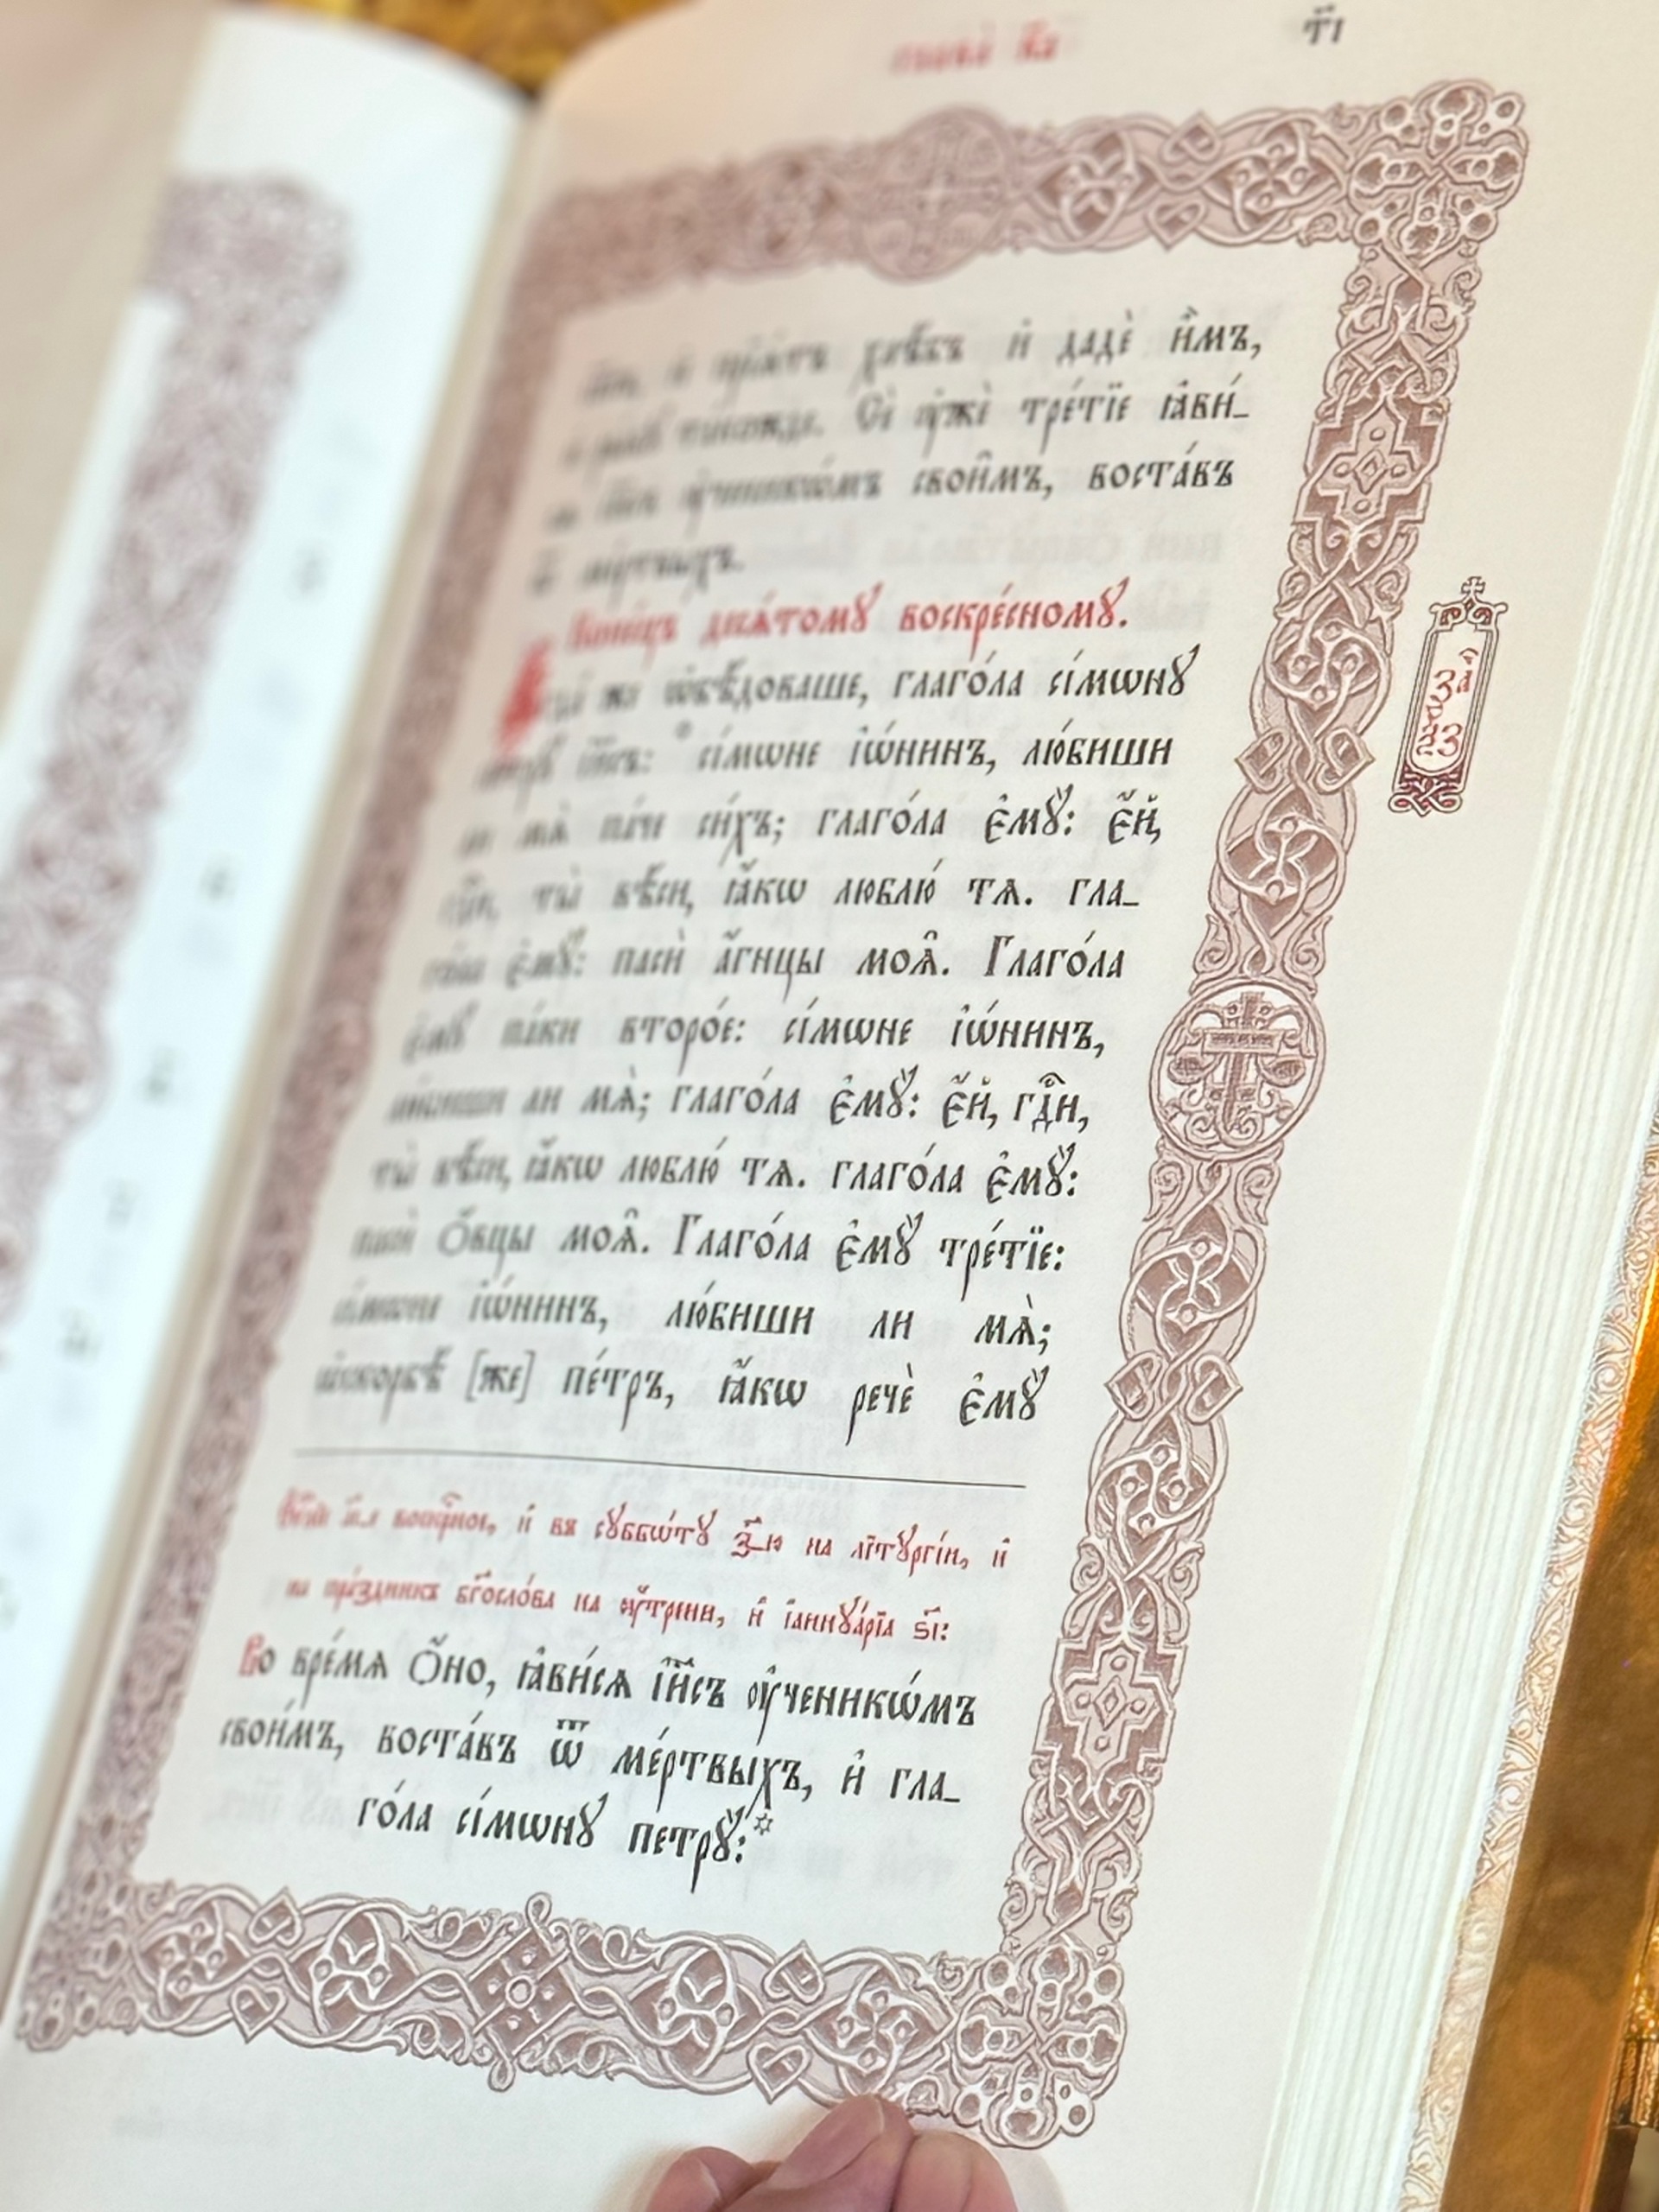 глава̀ к҃а
т҃і
і҆и҃съ, и҆ прїѧ́тъ хлѣ́бъ и҆ дадѐ и҆̀мъ,
и҆ ры́бꙋ та́кожде. Сѐ ᲂу҆жѐ тре́тїе ꙗ҆ви́_
сѧ і҆и҃съ ᲂу҆ченикѡ́мъ свои̑мъ, воста́въ
ѿ ме́ртвыхъ.
Коне́цъ десѧ́томꙋ воскре́сномꙋ.
Є҆гда́ же ѡ҆бѣ́доваше, глаго́ла сі́мѡнꙋ
петрꙋ̀ і҆и҃съ: * сі́мѡне і҆ѡ́нинъ, лю́биши
ли мѧ̀ па́че си́хъ; глаго́ла є҆мꙋ̀: є҆́й,
гдⷭ҇и, ты̀ вѣ́си, ꙗ҆́кѡ люблю́ тѧ. гла_
го́ла є҆мꙋ̀: пасѝ а҆́гнцы моѧ̑. Глаго́ла
є҆мꙋ̀ па́ки второ́е: сі́мѡне і҆ѡ́нинъ,
лю́биши ли мѧ̀; глаго́ла є҆мꙋ̀: є҆́й, гдⷭ҇и,
ты̀ вѣ́си, ꙗ҆́кѡ люблю́ тѧ. глаго́ла є҆мꙋ̀:
пасѝ ѻ҆́вцы моѧ̑. Глаго́ла є҆мꙋ̀ тре́тїе:
сі́мѡне і҆ѡ́нинъ, лю́биши ли мѧ̀;
ѡ҆скорбѣ́ [же] пе́тръ, ꙗ҆́кѡ речѐ є҆мꙋ̀
за҃_ч҃ ѯ҃з
є҆ѵⷢ҇лїе а҃і воскрⷭ҇ное, и҆ въ сꙋббѡ́тꙋ з҃_ю на лїтꙋргі́и, и҆
на пра́здникъ бг҃осло́ва на ᲂу҆́трени, и҆ і҆аннꙋа́рїа ѕ҃і:
Во вре́мѧ ѻ҆́но, ꙗ҆ви́сѧ і҆и҃съ ᲂу҆ченикѡ́мъ
свои̑мъ, воста́въ ѿ ме́ртвыхъ, и҆ гла_
го́ла сі́мѡнꙋ петрꙋ̀: *